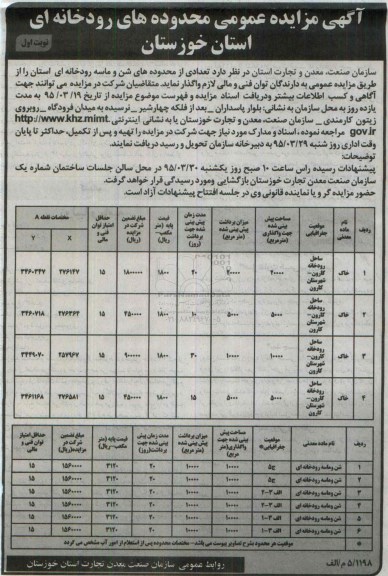 آگهی مزایده عمومی محدوده های رودخانه ای
استان خوزستان
نوبت اول
سازمان صنعت، معدن و تجارت استان در نظر دارد تعدادی از محدوده های شن و ماسه رودخانه ای استان را از
طریق مزایده عمومی به دارندگان توان فنی و مالی لازم واگذار نماید. متقاضیان شرکت در مزایده می توانند جهت
آگاهی و کسب اطلاعات بیشتر ودریافت اسناد مزایده و فهرست موضوع مزایده از تاریخ ۹۵/۰۳/۱۹ به مدت
یازده روز به محل سازمان به نشانی: بلوار پاسداران _ بعد از فلکه چهارشیر _ نرسیده به میدان فرودگاه _ روبروی
زیتون کارمندی _ سازمان صنعت، معدن و تجارت خوزستان یا به نشانی اینترنتی http://www.khz.mimt.
gov.ir مراجعه نموده ، اسناد و مدارک مورد نیاز جهت شرکت در مزایده را تهیه و پس از تکمیل، حداکثر تا پایان
وقت اداری روز شنبه ۹۵/۰۳/۲۹ به دبیرخانه سازمان تحویل و رسید دریافت نمایند.
توضیحات:
پیشنهادات رسیده راس ساعت ۱۰ صبح روز یکشنبه ۹۵/۰۳/۳۰ در محل سالن جلسات ساختمان شماره یک
سازمان صنعت معدن تجارت خوزستان بازگشایی ومورد رسیدگی قرار خواهد گرفت.
حضور مزایده گر و یا نماینده قانونی وی در جلسه افتتاح پیشنهادات آزاد است.
ردیف نام ماده معدنی موقعیت جغرافیایی مساحت پیش بینی شده جهت واگذاری (مترمربع) میزان برداشت پیش بینی شده (متر مربع) مدت زمان پیش بینی شده جهت برداشت (روز) قیمت پایه (متر مکعب-ریال) مبلغ تضمین شرکت در مزایده (ریال) حداقل امتیاز توان فنی و مالی مختصات نقطه A X Y
۱ خاک ساحل رودخانه کارون- شهرستان کارون ۲۰۰۰۰ ۲۰۰۰۰ ۴۰ ۱۸۰۰ ۱۸۰۰۰۰۰ ۱۵ ۲۷۶۱۴۷ ۳۴۶۰۳۴۷
۲ خاک ساحل رودخانه کارون- شهرستان کارون ۵۰۰۰ ۵۰۰۰ ۱۰ ۱۸۰۰ ۴۵۰۰۰۰ ۱۵ ۲۷۶۳۶۴ ۳۴۶۰۷۱۸
۳ خاک ساحل رودخانه کارون- شهرستان کارون ۱۰۰۰۰ ۱۰۰۰۰ ۳۰ ۱۸۰۰ ۹۰۰۰۰۰ ۱۵ ۲۵۷۹۶۷ ۳۴۴۹۰۷۰
۴ خاک ساحل رودخانه کارون- شهرستان کارون ۵۰۰۰ ۵۰۰۰ ۱۵ ۱۸۰۰ ۴۵۰۰۰۰ ۱۵ ۲۷۶۵۸۱ ۳۴۶۱۱۶۸
ردیف نام ماده معدنی موقعیت جغرافیایی* مساحت پیش بینی شده جهت واگذاری(متر مربع) میزان برداشت پیش بینی شده (متر مربع) مدت زمان پیش بینی شده جهت برداشت(روز) قیمت پایه(متر مکعب-ریال) مبلغ تضمین شرکت در مزایده(ریال) حداقل امتیاز توان فنی و مالی
۱ شن وماسه رودخانه ای ج۵ ۱۰۰۰۰ ۱۰۰۰۰ ۲۰ ۳۱۲۰ ۱۵۶۰۰۰۰ ۱۵
۲ شن وماسه رودخانه ای ج۵ ۱۰۰۰۰ ۱۰۰۰۰ ۲۰ ۳۱۲۰ ۱۵۶۰۰۰۰ ۱۵
۳ شن وماسه رودخانه ای الف ۳-۲ ۱۰۰۰۰ ۱۰۰۰۰ ۲۰ ۳۱۲۰ ۱۵۶۰۰۰۰ ۱۵
۴ شن وماسه رودخانه ای الف ۳-۲ ۱۰۰۰۰ ۱۰۰۰۰ ۲۰ ۳۱۲۰ ۱۵۶۰۰۰۰ ۱۵
۵ شن وماسه رودخانه ای الف ۳-۱ ۱۰۰۰۰ ۱۰۰۰۰ ۲۰ ۳۱۲۰ ۱۵۶۰۰۰۰ ۱۵
۶ شن وماسه رودخانه ای الف ۳-۱ ۱۰۰۰۰ ۱۰۰۰۰ ۲۰ ۳۱۲۰ ۱۵۶۰۰۰۰ ۱۵
* موقعیت هر محدود بشرح تصاویر پیوست می باشد- مختصات محدوده پس از استعلام از امور آب مشخص می گردد
روابط عمومی سازمان صنعت معدن تجارت استان خوزستان
۵/۱۱۹۸/م/الف